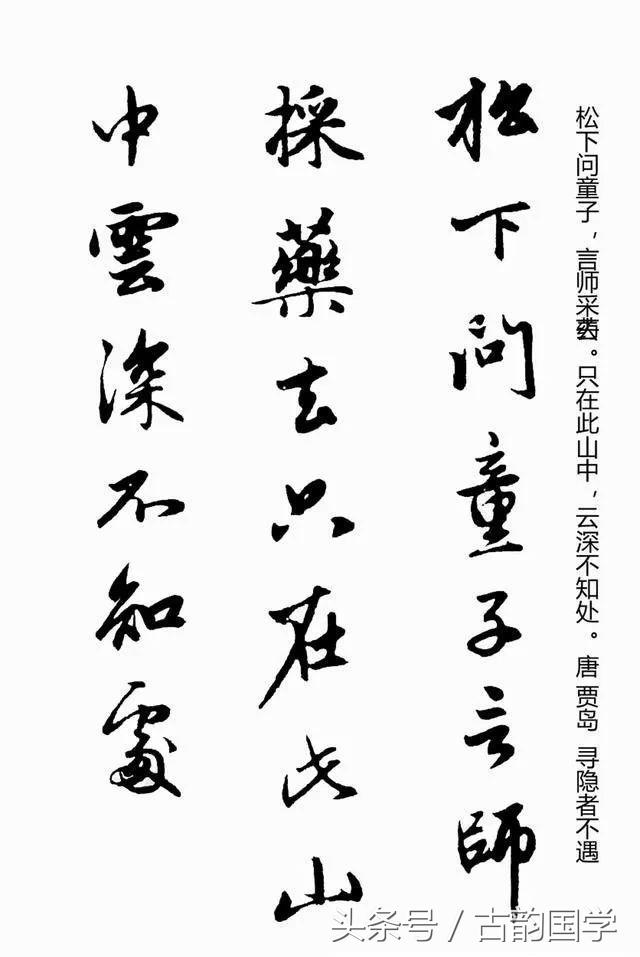 松下问童子，言师采药去。只在此山中，云深不知处。唐 贾岛 寻隐者不遇
松下問童子言師
採藥去只在此山
中雲深不知處
头条号／古韵国学